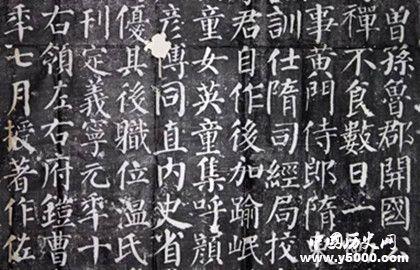 曾孫魯郡開國
禪不食數日一
事黃門侍郎隋
訓仕隋司經局校
君自作後加踰岷
童女英童集呼顏
彥博同直內史省
優其後職位溫氏
刊定義寧元年十
右領左右府鎧曹
年七月授著作佐
中国历史网
www.y5000.com